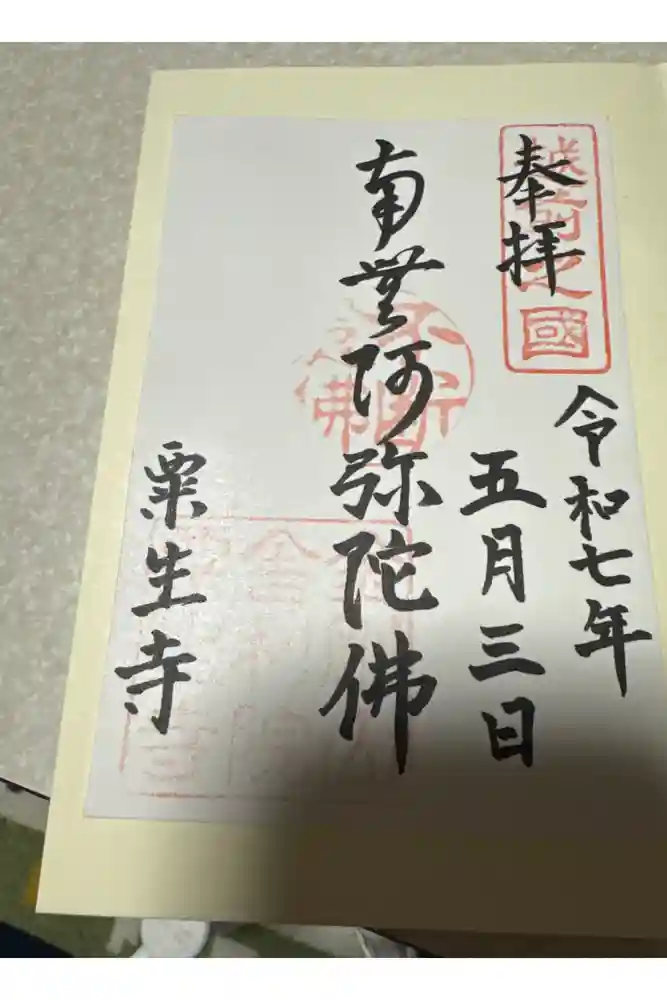 奉拝
越前之國
令和七年
五月三日
南無阿弥陀佛
粟生寺